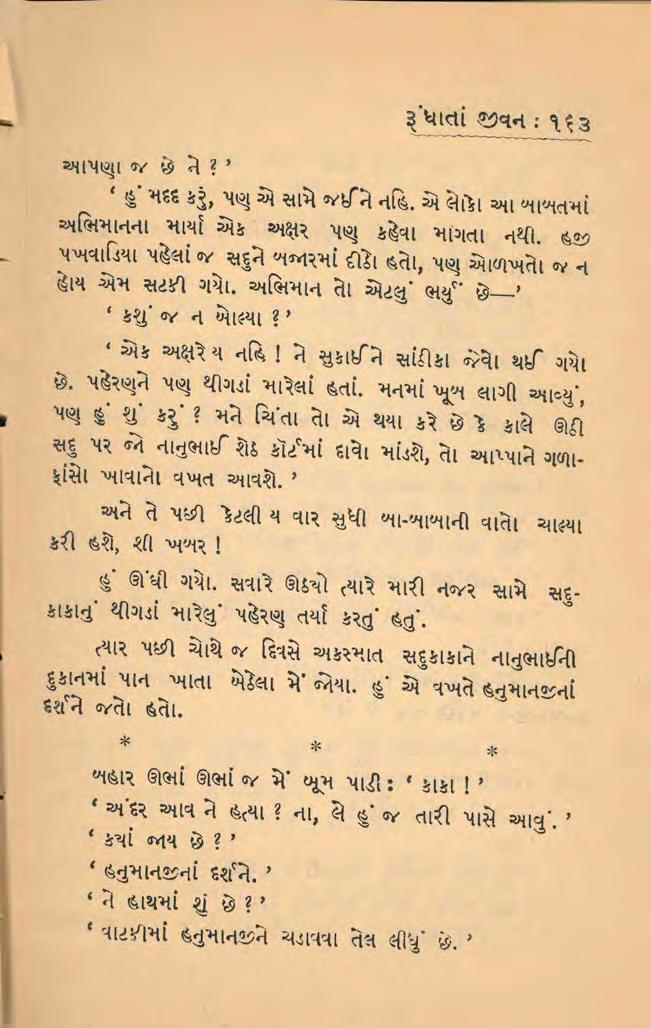 રૂંધાતાં જીવન : ૧૬૩
આપણા જ છે ને ? ’
‘ હું મદદ કરું, પણ એ સામે જઈને નહિ. એ લોકો આ બાબતમાં
અભિમાનના માર્યા એક અક્ષર પણ કહેવા માગતા નથી. હજી
પખવાડિયા પહેલાં જ સદુને બજારમાં દીઠો હતો, પણ ઓળખતો જ ન
હોય એમ સટકી ગયો. અભિમાન તો એટલું ભર્યું છે—’
‘ કશું જ ન બોલ્યા ? ’
‘ એક અક્ષરે ય નહિ ! ને સુકાઈને સાંઠીકા જેવો થઈ ગયો
છે. પહેરણને પણ થીગડાં મારેલાં હતાં. મનમાં ખૂબ લાગી આવ્યું,
પણ હું શું કરું ? મને ચિંતા તો એ થયા કરે છે કે કાલે ઊઠી
સદુ પર જો નાનુભાઈ શેઠ કૉર્ટમાં દાવો માંડશે, તો આપ્પાને ગળા-
ફાંસો ખાવાનો વખત આવશે. ’
અને તે પછી કેટલી ય વાર સુધી બા-બાબાની વાતો ચાલ્યા
કરી હશે, શી ખબર !
હું ઊંઘી ગયો. સવારે ઊઠયો ત્યારે મારી નજર સામે સદુ-
કાકાનું થીગડાં મારેલું પહેરણ તર્યા કરતું હતું.
ત્યાર પછી ચોથે જ દિવસે અકસ્માત સદુકાકાને નાનુભાઈની
દુકાનમાં પાન ખાતા બેઠેલા મેં જોયા. હું એ વખતે હનુમાનજીનાં
દર્શને જતો હતો.
* * *
બહાર ઊભાં ઊભાં જ મેં બૂમ પાડી : ‘ કાકા ! ’
‘ અંદર આવ ને હત્યા ? ના, લે હું જ તારી પાસે આવું. ’
‘ કયાં જાય છે ? ’
‘ હનુમાનજીનાં દર્શને. ’
‘ ને હાથમાં શું છે ? ’
‘ વાટકીમાં હનુમાનજીને ચડાવવા તેલ લીધું છે. ’